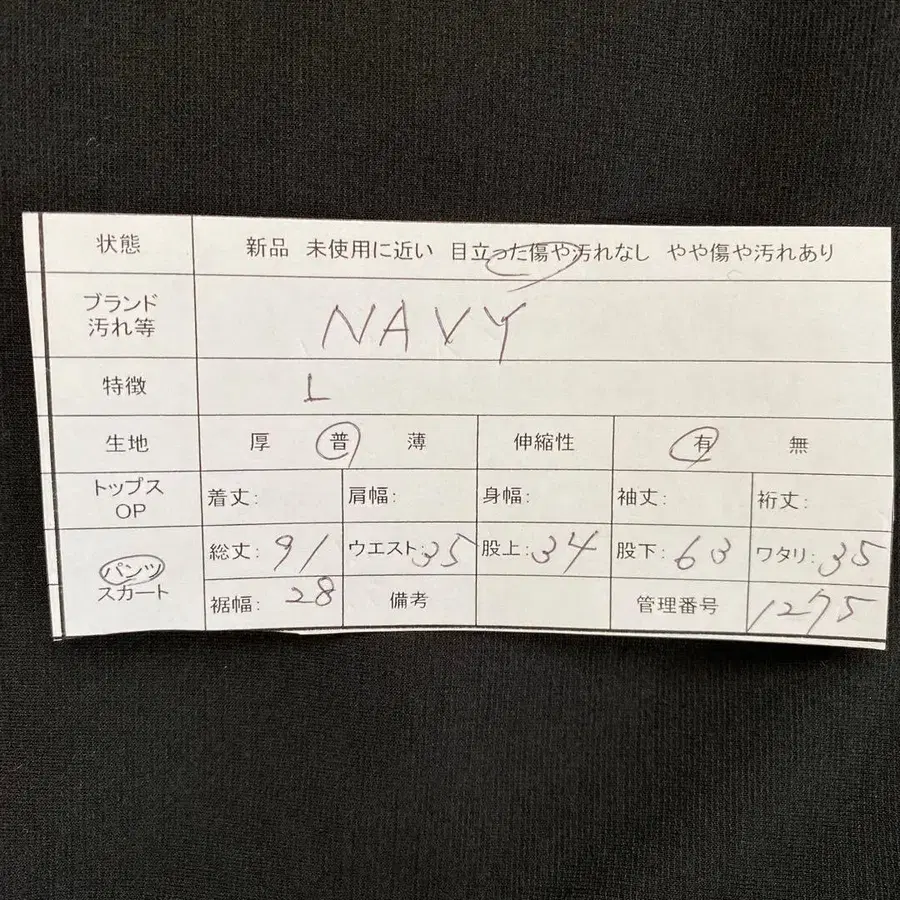 状態 新品 未使用に近い 目立った傷や汚れなし やや傷や汚れあり
ブランド
汚れ等 NAVY
特徴 L
生地 厚 普 薄 伸縮性 有 無
トップス
OP 着丈: 肩幅: 身幅: 袖丈: 裄丈:
パンツ
スカート 総丈:91 ウエスト:35 股上:34 股下:63 ワタリ:35
裾幅:28 備考 管理番号 1275